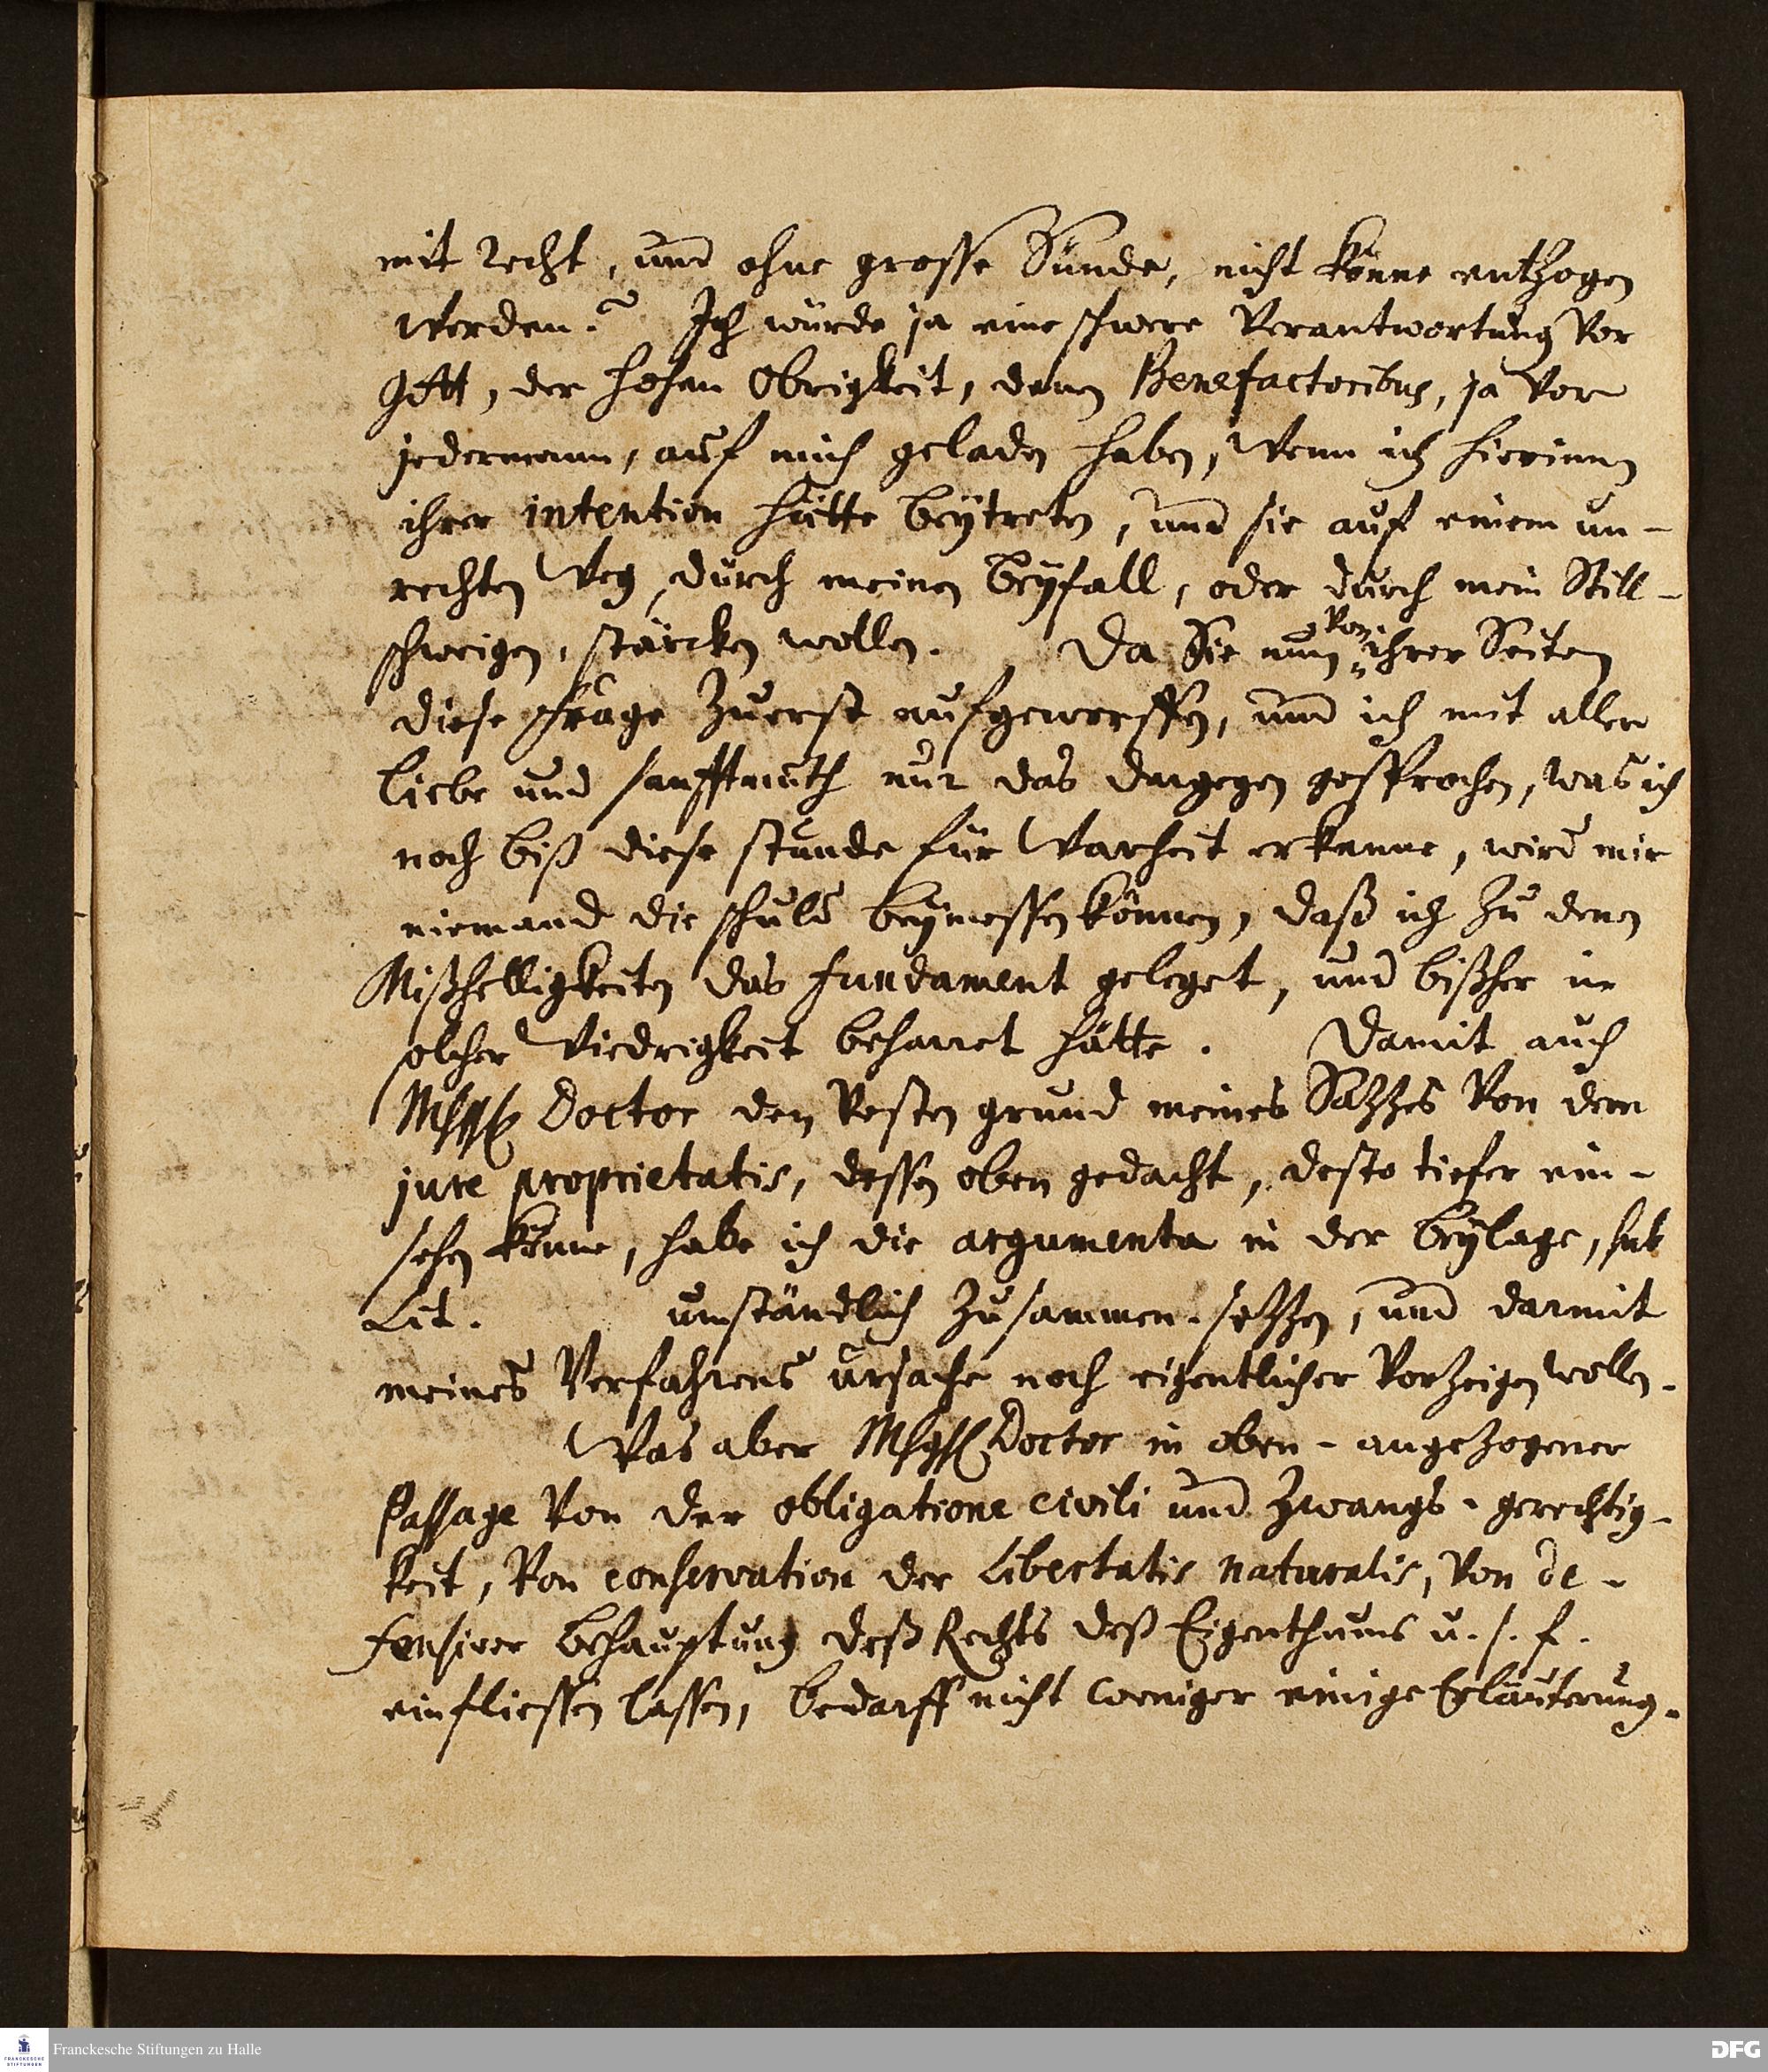 mit recht, und ohne grosse Sünde, nicht könne entzogen
werden? Ich würde ja eine schwere Verantwortung vor
Gott, der hohen Obrigkeit, denen Benefactoribus, ja vor
jedermann, auf mich geladen haben, wenn ich hierinnen
ihrer intention hätte beÿtreten, und sie auf einem un-
rechten Weg, durch meinen beÿfall, oder durch mein Still-
schweigen, stärcken wollen. Da Sie nun von ihrer Seiten
diese frage zuerst aufgeworffen, und ich mit aller
liebe und sanfftmuth nur das dargegen gesprochen, was ich
noch biß diese stunde für Warheit erkenne, wird mir
niemand die schuld beÿmessen können, daß ich zu denen
Mißhelligkeiten das fundament geleget, und bißher in
solcher Wiedrigkeit beharret hätte. Damit auch
Doctor den vesten grund meines Sazzes von dem
jure proprietatis, dessen oben gedacht, desto tiefer ein-
sehen könne, habe ich die argumenta in der beÿlage, sub
Lit. umständlich zusammen-sezzen, und darmit
meines Verfahrens ursache noch eigentlicher vorzeigen wollen.
Was aber Doctor in oben-angezogener
Passage von der obligatione civili und zwangs-gerechtig-
keit, von conservation der Libertatis naturalis, von de-
fensiver behauptung deß Rechts deß Eigenthums u. s. f.
einfliessen lassen, bedarff nicht weniger einige Erläuterung.
Franckesche Stiftungen zu Halle
FRANCKESCHE STIFTUNGEN
DFG